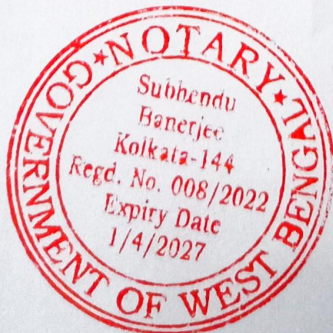 ★NOTARY★
GOVERNMENT OF WEST BENGAL
Subhendu
Banerjee
Kolkata-144
Regd. No. 008/2022
Expiry Date
1/4/2027